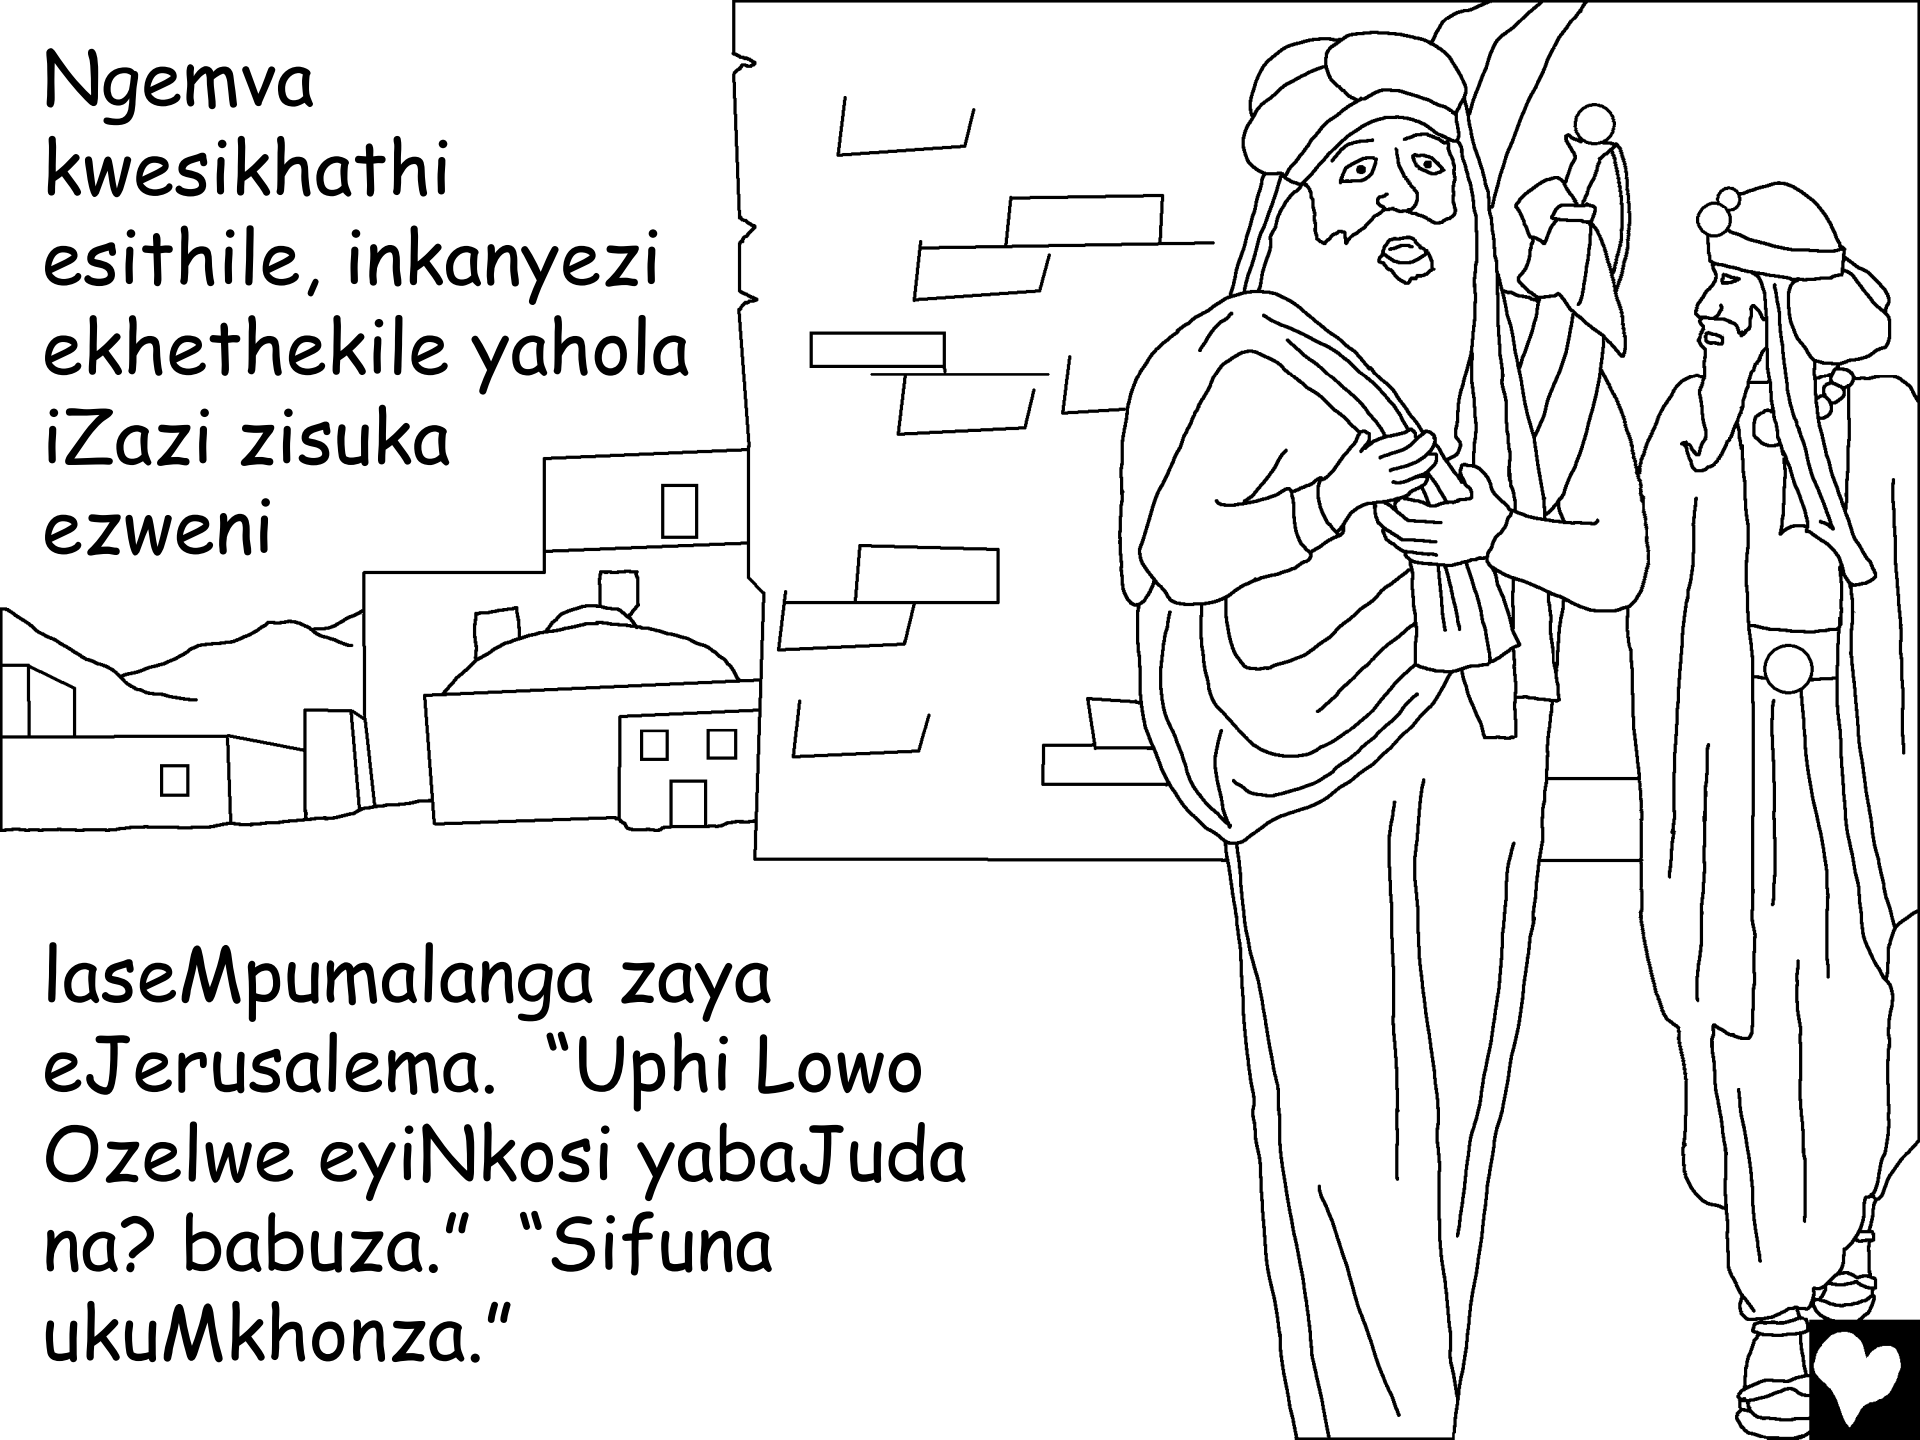 Ngemva
kwesikhathi
esithile, inkanyezi
ekhethekile yahola
iZazi zisuka
ezweni
laseMpumalanga zaya
eJerusalema.  “Uphi Lowo
Ozelwe eyiNkosi yabaJuda
na? babuza.”  “Sifuna
ukuMkhonza.”